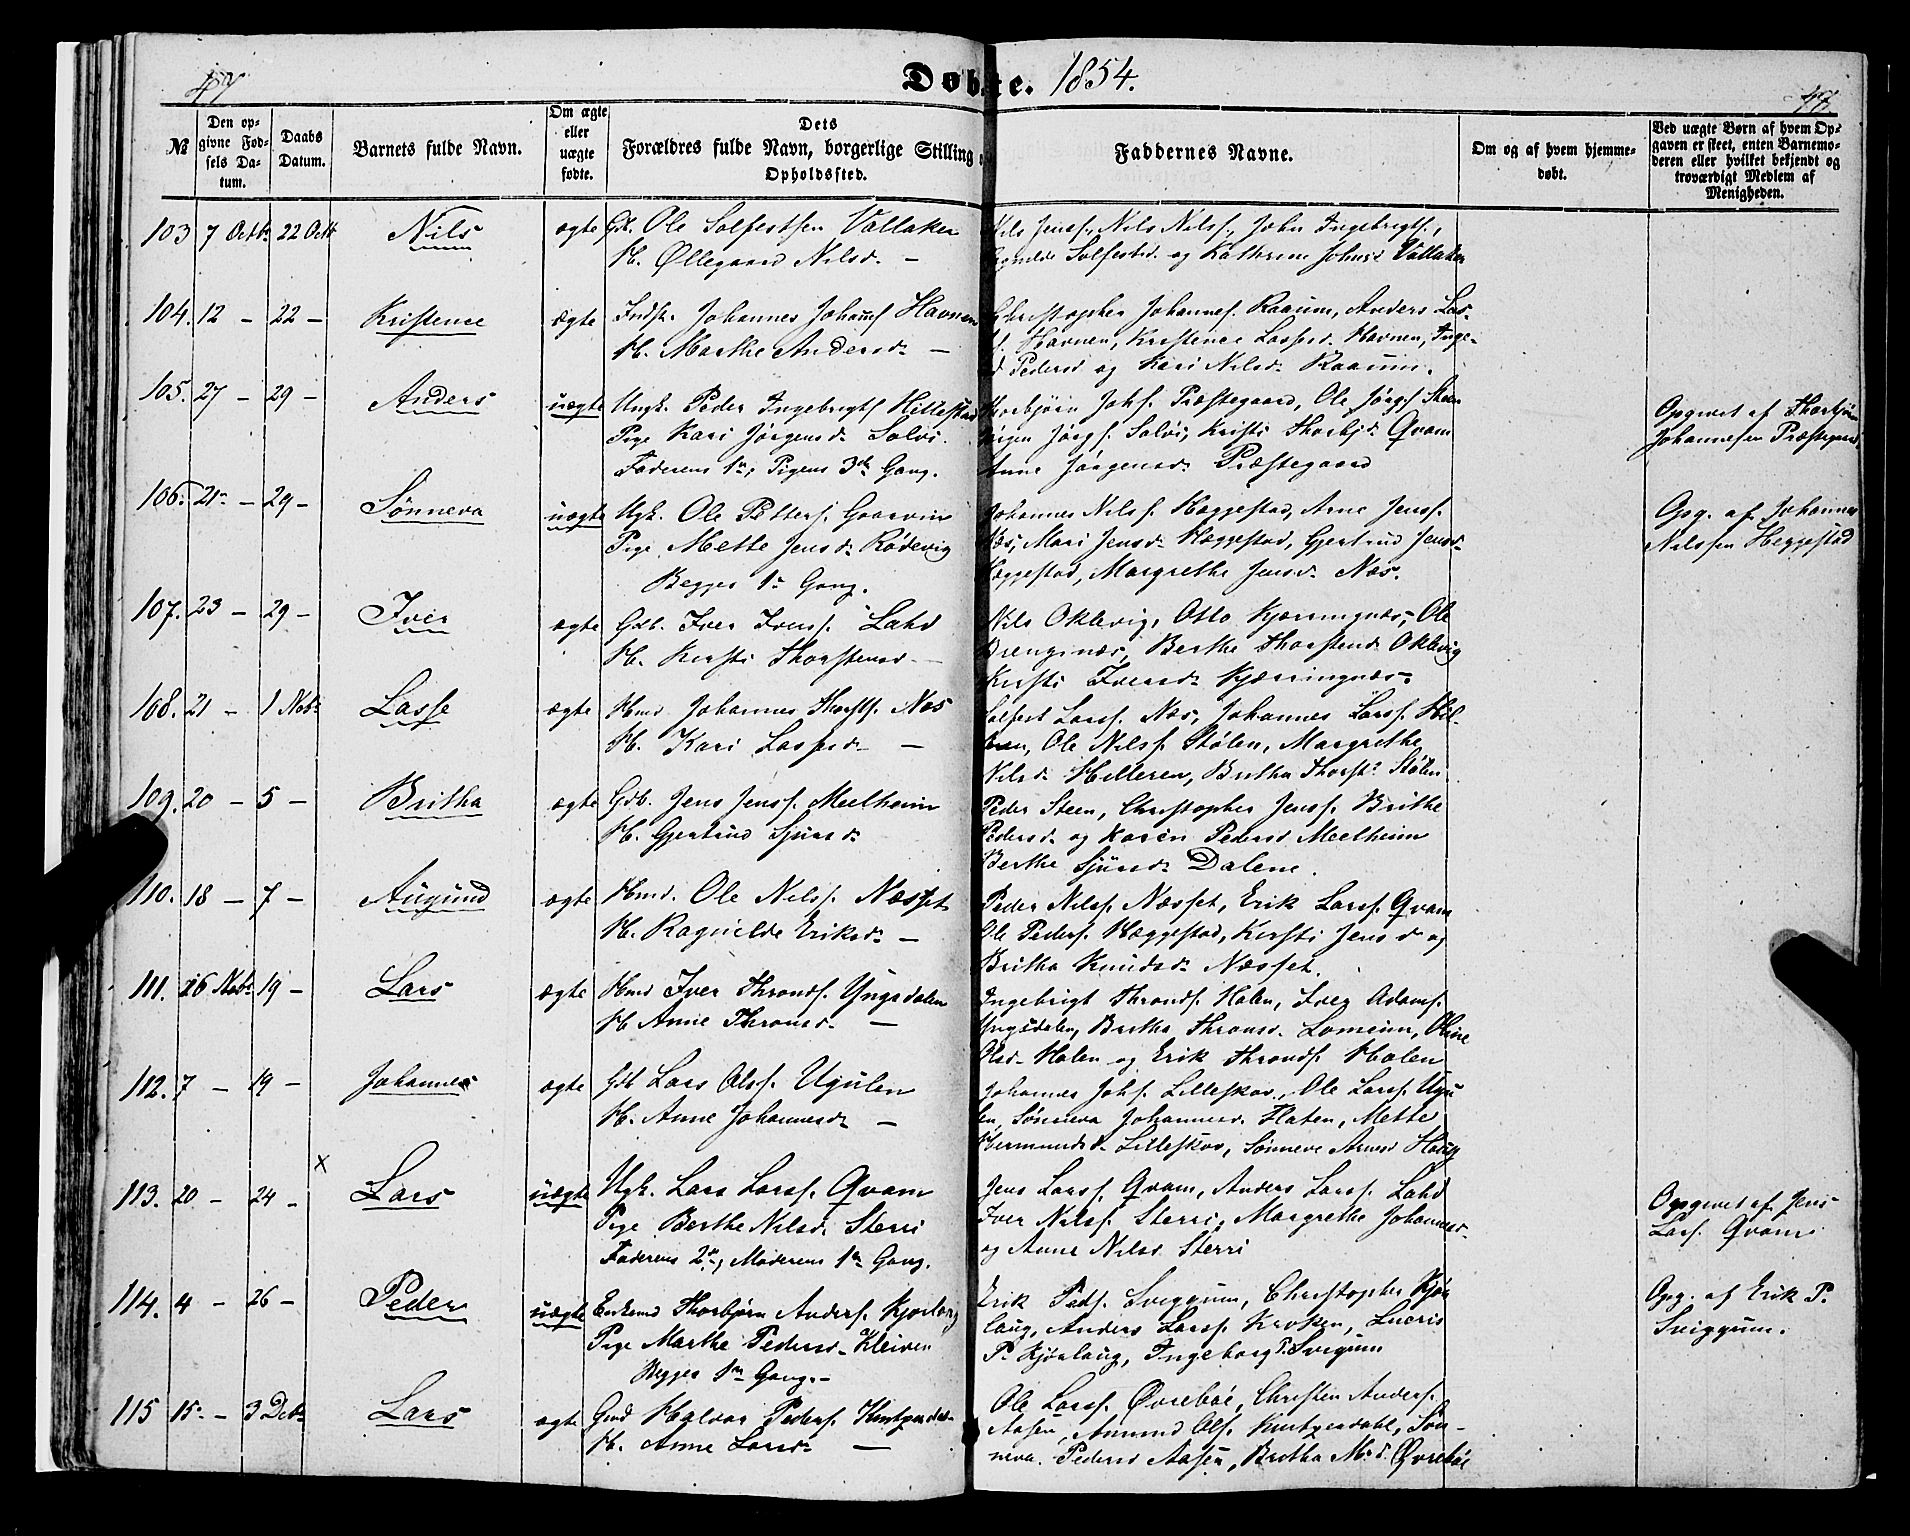 47
Døbte. 1854.
47
№
Den opgivne Fødsels Datum.
Daabs Datum.
Barnets fulde Navn.
Om ægte eller uægte fødte.
Dets Forældres fulde Navn, borgerlige Stilling
Opholdssted.
Faddernes Navne.
Om og af hvem hjemmedøbt.
Ved uægte Børn af hvem Opgaven er skeet, enten Barnemoderen eller hvilket bekjendt og troværdigt Medlem af Menigheden.
103 7 Octbr 22 Octbr Nils ægte Gb. Ole Solfestsen Vallaker
H. Øllegaard Nilsd. —
Nils Jens., Nils Nilsf., John Ingebrigtf.,
Solfestd. og Kathrine Johnsd Vallaker
104. 12 – 22 – Kristence ægte Indst. Johannes Johannsf Havnen
H. Marthe Andersdr —
Christopher Johannesf. Raaum, Anders Las-
Havnen, Kristence Lassesd. Havnen, Inge-
Pedersd og Kari Nilsdr Raaum.
105. 27 – 29 – Anders uægte Ungk. Peder Ingebrigtf Hillestad
Pige Kari Jørgensdr Solvi.
Faderens 1ste, Pigens 3die Gang.
Thorbjörn Johs. Præstegaard, Ole Jörgf Steen
Jörgen Jörgf. Solvi, Kristi Thorbjdr Qvam
Anne Jörgensdr Præstegaard
Opgivet af Thorbjörn
Johannesen Præstegaard
106. 21 – 29 – Sönneva uægte Ugk. Ole Petterf.
Pige Mette Jensdr Rödevig
Begges 1ste Gang.
Johannes Nilsf. Heggestad, Arne Jensf.
Næs, Mari Jensdr Heggestad, Gjertrud Jensdr
Heggestad, Margrethe Jensdr Næs.
Opg. af Johannes
Nilssen Heggestad
107. 23 – 29 – Iver ægte Gdb. Iver Iversf. Lahd
H. Kirsti Thorstensd. —
Nils Oklevig, Otto Kjærringnæs, Ole
Drengenæs, Berthe Thorstensd Oklevig
Kirsti Iversdr Kjærringnæs.
108. 21 – 1 Nobr Lasse ægte Hmd. Johannes Thorstf. Næs
H. Kari Lassesdr —
Solfest Larsf. Næs, Johannes Larsf. Hil-
leren, Ole Nilsf. Stølen, Margrethe
Nilsdr Hilleren, Britha Thorstd. Stølen
109. 20 – 5 – Britha ægte Gdb. Jens Jensf. Meelheim
H. Gjertrud Sjursdr
Peder Steen, Christopher Jensf. Brithe
Pedersdr og Karen Pedersd Meelheim
Berthe Sjursdr Dalene.
110. 18 – 7 – Augund ægte Hmd. Ole Nilsf. Næsset
H. Ragnilde Eriksdr —
Peder Nilsf. Næsset, Erik Larsf. Qvam
Ole Pedersf. Heggestad, Kirsti Jensdr og
Britha Knudsdr Næsset.
111. 16 Nobr 19 – Lars ægte Hmd Iver Thronds. Yngsdalen
H. Anne Thronsdr —
Ingebrigt Throndf. Halen, Iver Adamf.
Yngsdalen, Britha Thronsd. Lomeim, Oline
Olsdr Halen og Erik Throndf. Halen
112. 7 – 19 – Johannes ægte Gdb Lars Olsf. Ugulen
H. Anne Johannesdr —
Johannes Johf. Lilleskov, Ole Larsf. Ugu-
len, Sönneva Johannesd. Flaten, Mette
Hermundsdr Lilleskov, Sönneve Arnesd Houg
x
113. 20 – 24 – Lars uægte Ugk. Lars Larsf. Qvam
Pige Berthe Nilsd. Sterri
Faderens 2den, Moderens 1ste Gang.
Jens Larsf. Qvam, Anders Larsf. Lahd
Iver Nilsf. Sterri, Margrethe Johannesdr
og Anne Nilsd. Sterri
Opgivet af Jens
Larsf. Qvam
114. 4 – 26 – Peder uægte Enkemd Thorbjørn Andersf. Kjørlaug
Pige Marthe Pedersdr Kleiven
Begges 1ste Gang. –
Erik Pedf. Sviggum, Christopher Kjør-
laug, Anders Larsf. Kroken, Lucris
P. Kjörlaug, Ingeborg P. Svigum
Opg. af Erik P.
Sviggum.
115 15 – 3 Debr Lars ægte Gmd Halvor Pedersf.
H. Anne Larsdr —
Ole Larsf. Øvrebøe, Christen Andersf.
Aasen, Amund Olsf. Sön-
neva Pedersd Aasen, Britha Øvrebøe